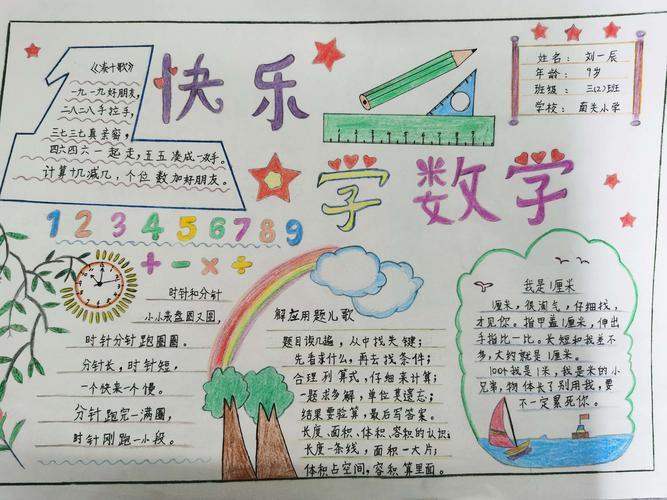 《凑十歌》
一九一九好朋友,
二八二八手拉手,
三七三七真亲密,
四六四六一起走,五五凑成一双手。
计算十几减几,个位数加好朋友。
快乐
学数学
姓名:刘一辰
年龄:9岁
班级:三(2)班
学校:南关小学
1 2 3 4 5 6 7 8 9
+ - × ÷
时针和分针
小小表盘圆又圆,
时针分针跑圈圈。
分针长,时针短,
一个快来一个慢。
分针跑完一满圈,
时针刚跑一小段。
解应用题儿歌
题目读几遍,从中找关键;
先看求什么,再去找条件;
合理列算式,仔细来计算;
一题求多解,单位莫遗忘;
结果要验算,最后写答案。
长度、面积、体积、容积的认识;
长度一条线,面积一大片;
体积占空间,容积算里面。
我是1厘米
1厘米,很淘气,仔细找,
才见你。指甲盖1厘米,伸出
手指比一比。长短和我差不
多,大约就是1厘米。
100个我是1米,我是米的小
兄弟,物体长了别用我,要
不一定累死你。